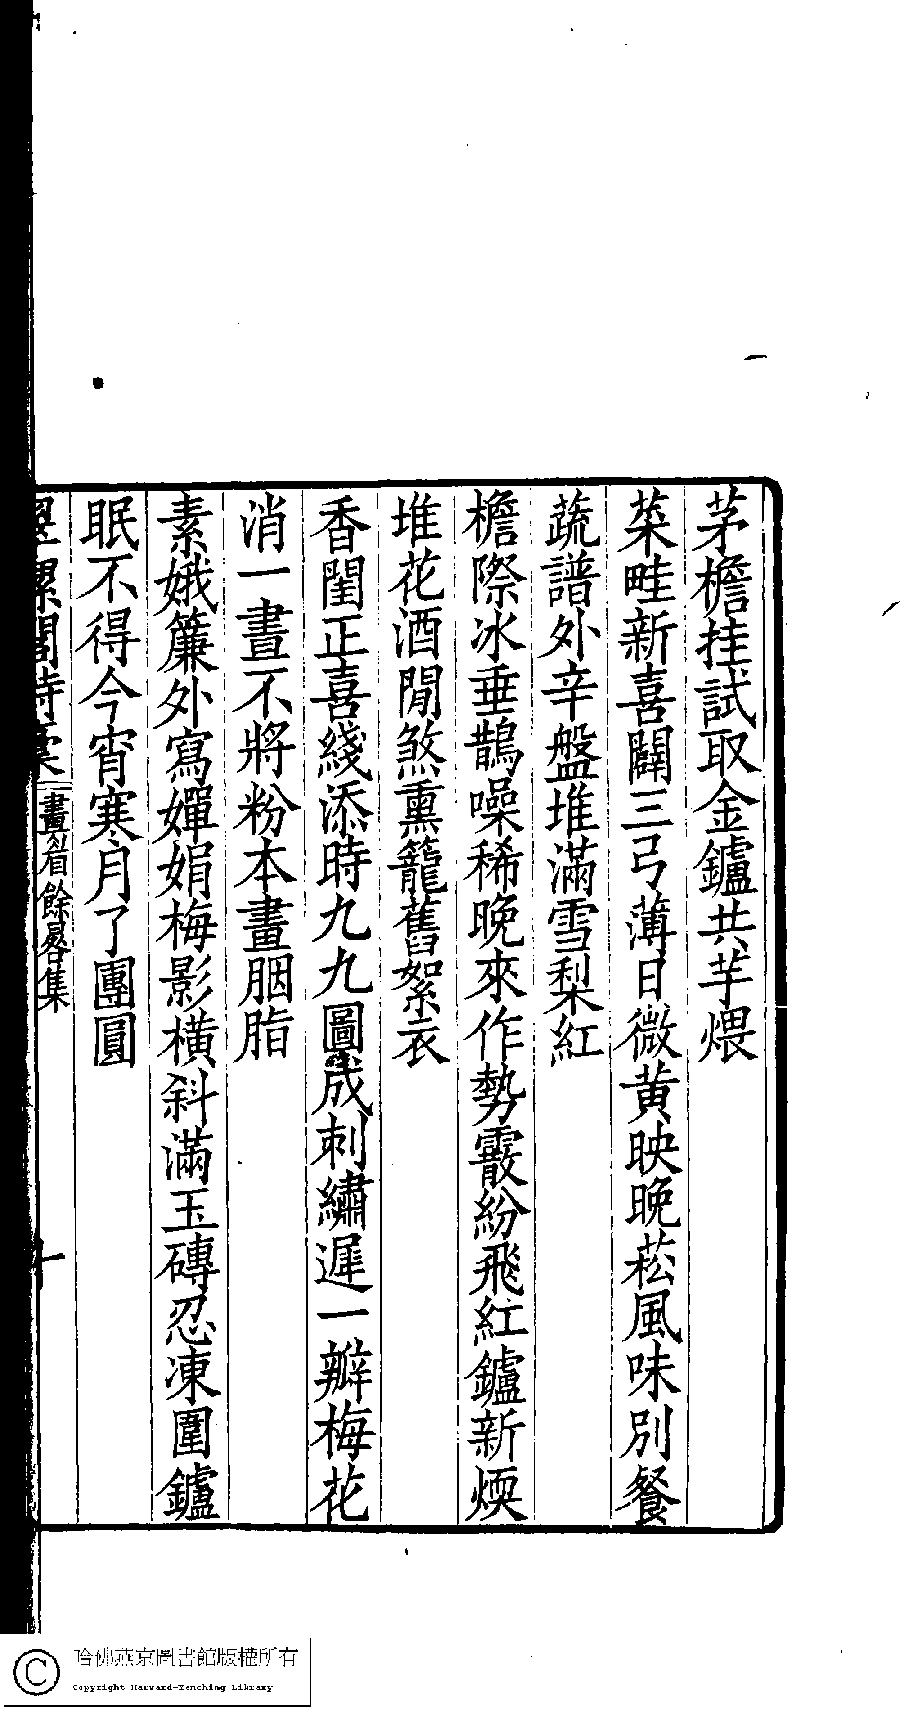 茅檐挂試取金鑪共芋煨
菜畦新喜闢三弓薄日微黄映晚菘風味別餐
蔬譜外辛盤堆滿雪梨紅
檐際冰垂鵲噪稀晚來作勢霰紛飛紅鑪新煗
堆花酒閒煞熏籠舊絮衣
香閨正喜綫添時九九圖成刺繡遲一瓣梅花
消一晝不將粉本畫胭脂
素娥簾外寫嬋娟梅影橫斜滿玉磚忍凍圍鑪
眠不得今宵寒月了團圓
翠螺閣詩稾 畫眉餘晷集 十
哈佛燕京圖書館版權所有
Copyright Harvard-Yenching Library